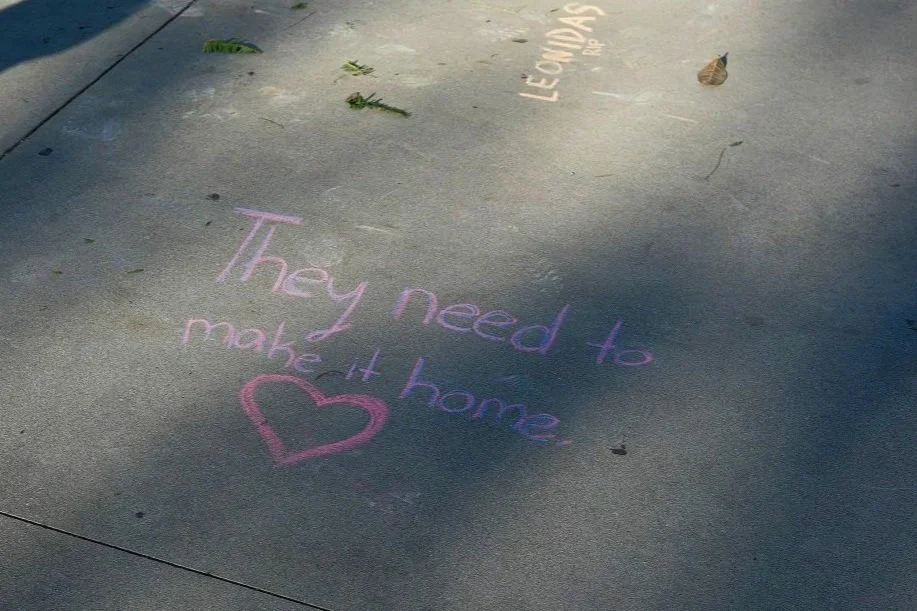 LEONIDAS
RIP
They need to
make it home.